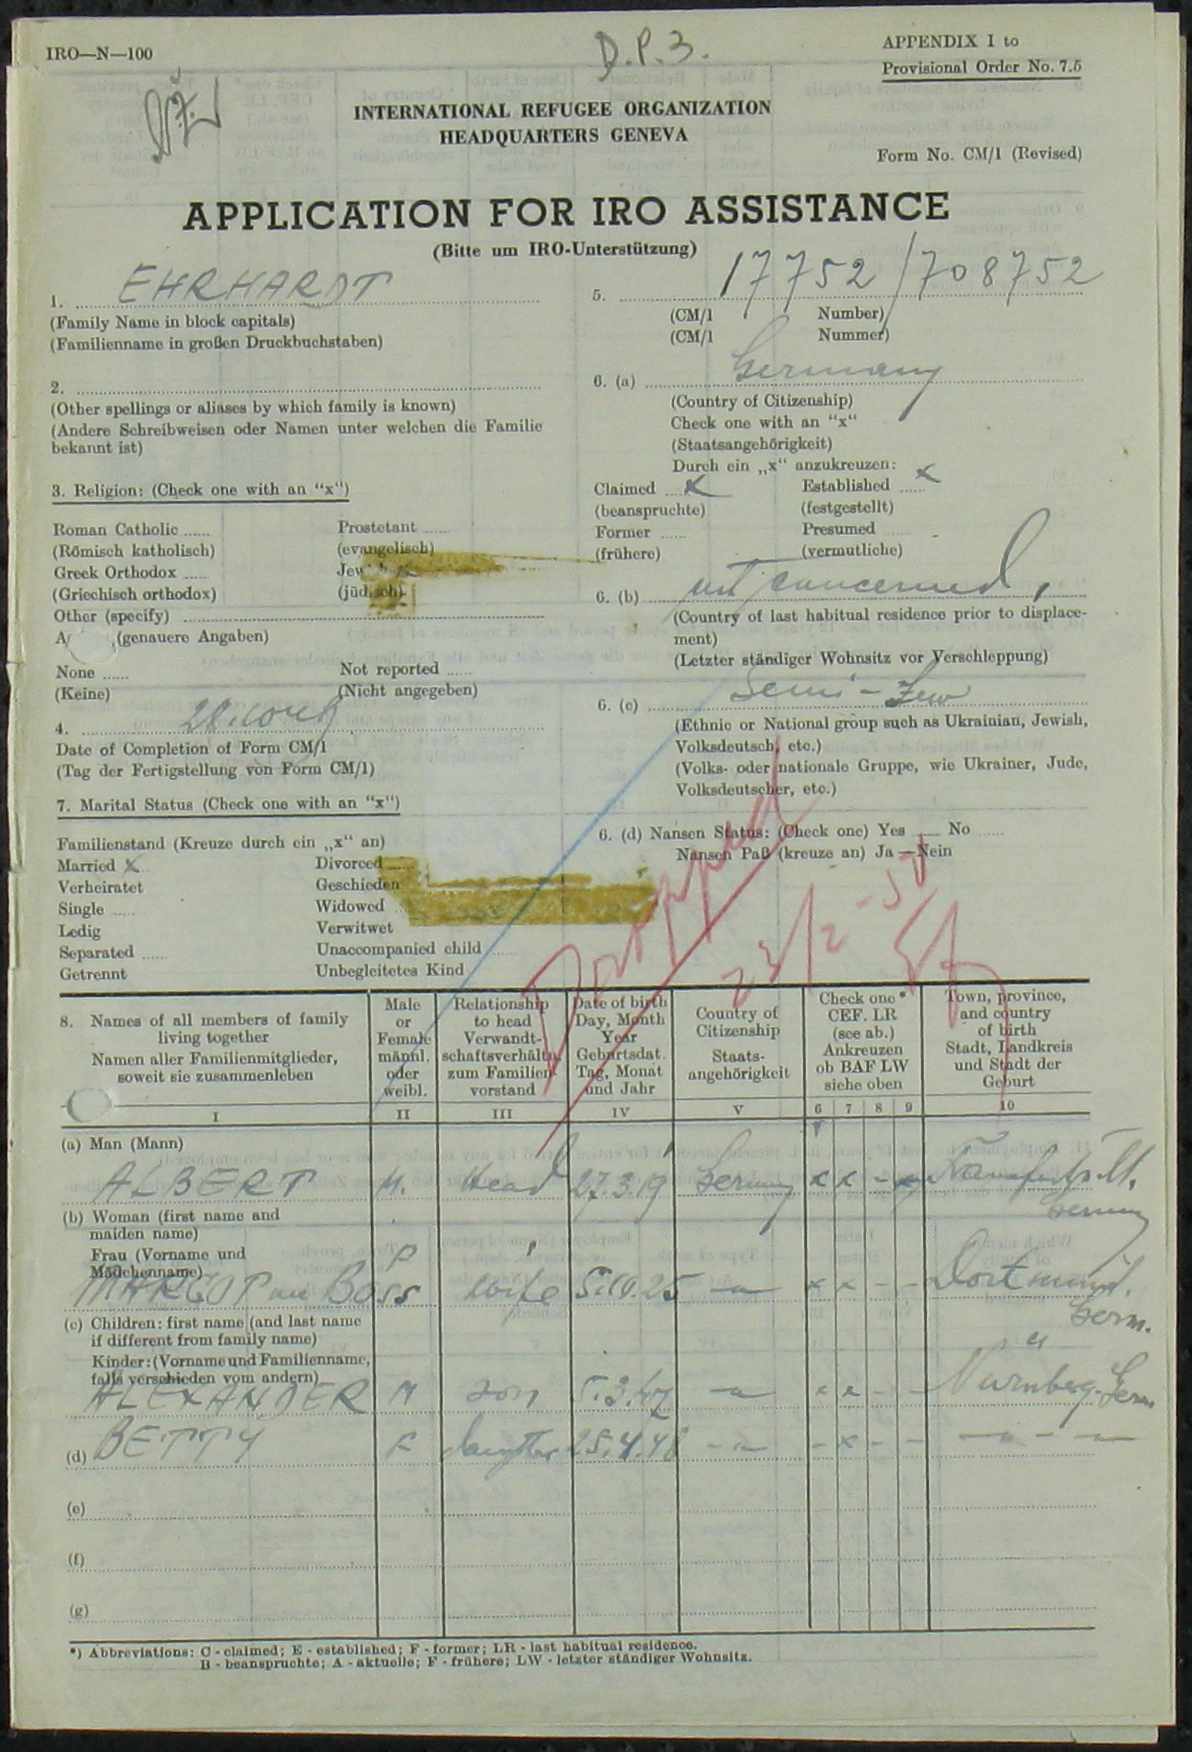 IRO—N—100
D.P.3.
APPENDIX 1 to
Provisional Order No. 7.5
INTERNATIONAL REFUGEE ORGANIZATION
HEADQUARTERS GENEVA
Form No. CM/1 (Revised)
APPLICATION FOR IRO ASSISTANCE
(Bitte um IRO-Unterstützung)
1. EHRHARDT
(Family Name in block capitals)
(Familienname in großen Druckbuchstaben)
2.
(Other spellings or aliases by which family is known)
(Andere Schreibweisen oder Namen unter welchen die Familie
bekannt ist)
3. Religion: (Check one with an “x“)
Roman Catholic ...... Prostetant ......
(Römisch katholisch) (evangelisch)
Greek Orthodox ...... Jew
(Griechisch orthodox) (jüdisch)
Other (specify)
(genauere Angaben)
None ...... Not reported ......
(Keine) (Nicht angegeben)
4.
Date of Completion of Form CM/1
(Tag der Fertigstellung von Form CM/1)
5. 17752/708752
(CM/1 Number)
(CM/1 Nummer)
6. (a) Germany
(Country of Citizenship)
Check one with an “x“
(Staatsangehörigkeit)
Durch ein „x“ anzukreuzen:
Claimed x Established x
(beanspruchte) (festgestellt)
Former ...... Presumed
(frühere) (vermutliche)
6. (b) not concerned
(Country of last habitual residence prior to displace-
ment)
(Letzter ständiger Wohnsitz vor Verschleppung)
6. (c) Semi-Jew
(Ethnic or National group such as Ukrainian, Jewish,
Volksdeutsch, etc.)
(Volks- oder nationale Gruppe, wie Ukrainer, Jude,
Volksdeutscher, etc.)
6. (d) Nansen Status: (Check one) Yes ...... No ......
Nansen Paß (kreuze an) Ja — Nein
7. Marital Status (Check one with an “x“)
Familienstand (Kreuze durch ein „x“ an)
Married x Divorced
Verheiratet Geschieden
Single ...... Widowed
Ledig Verwitwet
Separated ...... Unaccompanied child ......
Getrennt Unbegleitetes Kind
Dopped
8. Names of all members of family
living together
Namen aller Familienmitglieder,
soweit sie zusammenleben
I
Male
or
Female
männl.
oder
weibl.
II
Relationship
to head
Verwandt-
schaftsverhältn.
zum Familien-
vorstand
III
Date of birth
Day, Month
Year
Geburtsdat.
Tag, Monat
und Jahr
IV
Country of
Citizenship
Staats-
angehörigkeit
V
Check one *
CEF. LR
(see ab.)
Ankreuzen
ob BAF LW
siehe oben
6 7 8 9
Town, province,
and country
of birth
Stadt, Landkreis
und Stadt der
Geburt
10
(a) Man (Mann)
ALBERT M. Head 27.3.19 Germany x x - Frankfurt/M.
Germany
(b) Woman (first name and
maiden name)
Frau (Vorname und
Mädchenname)
MARGOT Boss F wife 5.10.25 x x - - Dortmund.
Germ.
(c) Children: first name (and last name
if different from family name)
Kinder: (Vorname und Familienname,
falls verschieden vom andern)
ALEXANDER M son 5.3.47 x x - - Nurnberg. Germ
(d) BETTY F daughter 25.4.48 - x - -
(e)
(f)
(g)
*) Abbreviations: C - claimed; E - established; F - former; LR - last habitual residence.
B - beanspruchte; A - aktuelle; F - frühere; LW - letzter ständiger Wohnsitz.